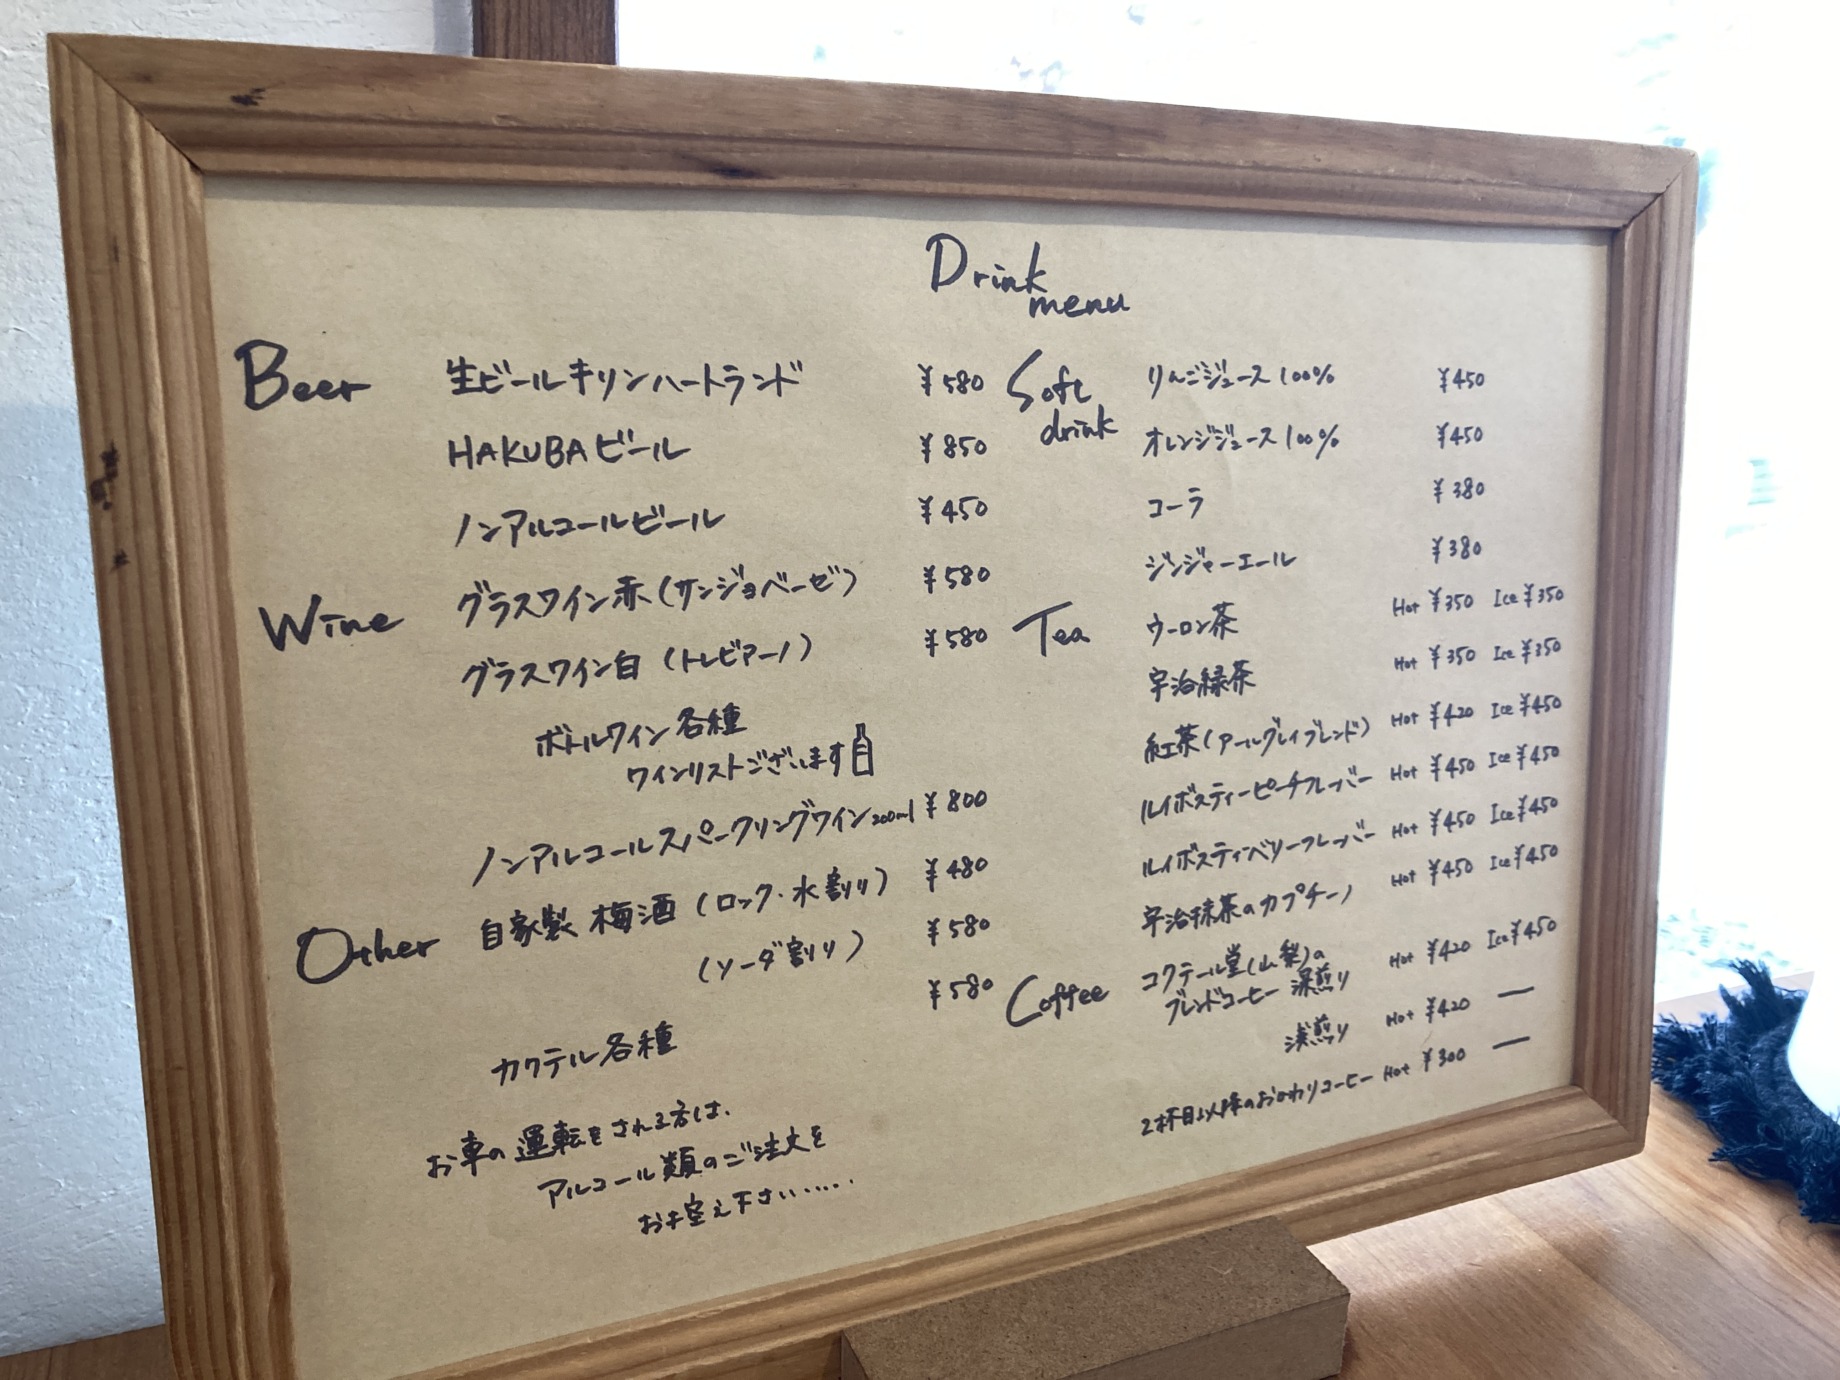 Drink
menu
Beer 生ビールキリンハートランド ¥580
HAKUBAビール ¥850
ノンアルコールビール ¥450
Wine グラスワイン赤(サンジョベーゼ) ¥580
グラスワイン白(トレビアーノ) ¥580
ボトルワイン各種
ワインリストございます
ノンアルコールスパークリングワイン200ml ¥800
Other 自家製 梅酒(ロック・水割り) ¥480
(ソーダ割り) ¥580
カクテル各種 ¥580
お車の運転をされる方は、
アルコール類のご注文を
お控え下さい.....
Soft
drink
りんごジュース100% ¥450
オレンジジュース100% ¥450
コーラ ¥380
ジンジャーエール ¥380
Tea ウーロン茶 Hot ¥350 Ice ¥350
宇治緑茶 Hot ¥350 Ice ¥350
紅茶(アールグレイブレンド) Hot ¥420 Ice ¥450
ルイボスティーピーチフレーバー Hot ¥450 Ice ¥450
ルイボスティーベリーフレーバー Hot ¥450 Ice ¥450
宇治抹茶のカプチーノ Hot ¥450 Ice ¥450
Coffee コクテール堂(山梨)の
ブレンドコーヒー 深煎り Hot ¥420 Ice ¥450
浅煎り Hot ¥420 —
2杯目以降のおかわりコーヒー Hot ¥300 —